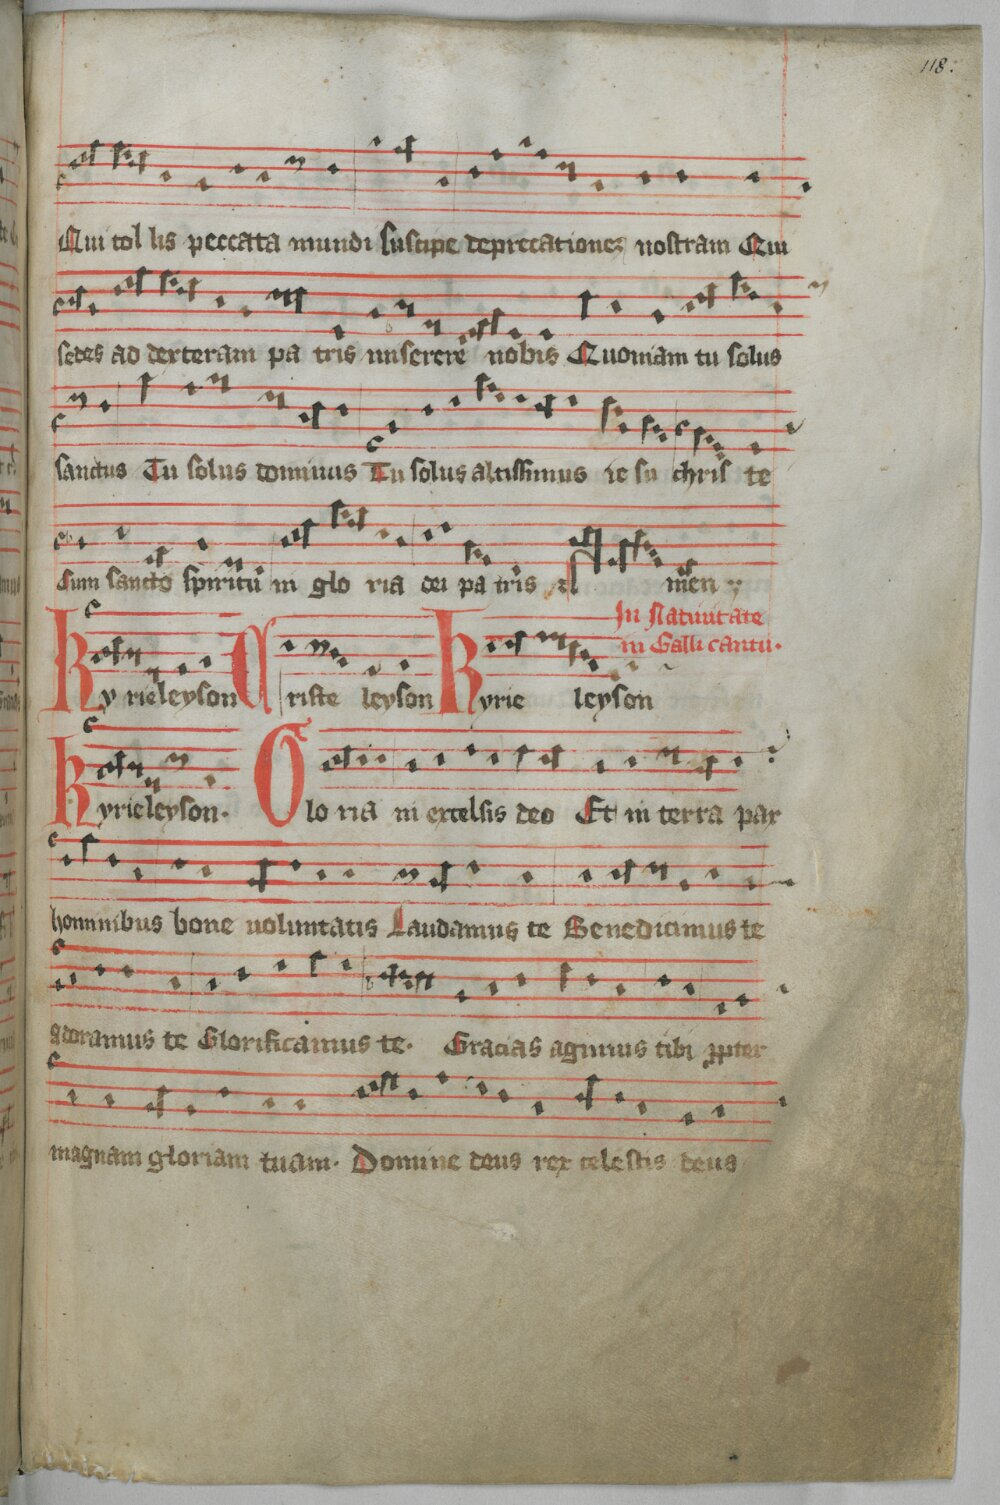 118.
Qui tol lis peccata mundi suscipe deprecationez nostram Qui
sedes ad dexteram pa tris miserere nobis Quoniam tu solus
sanctus Tu solus dominus Tu solus altissimus ie su chris te
Cum sancto spiritu in glo ria dei pa tris A men
In Natiuitate
in Galli cantu.
Kyrieleyson Christe leyson Kyrie leyson
Kyrieleyson. Glo ria in excelsis deo Et in terra pax
hominibus bone uoluntatis Laudamus te Benedicimus te
adoramus te Glorificamus te. Gracias agimus tibi ꝓpter
magnam gloriam tuam. Domine deus rex celestis deus